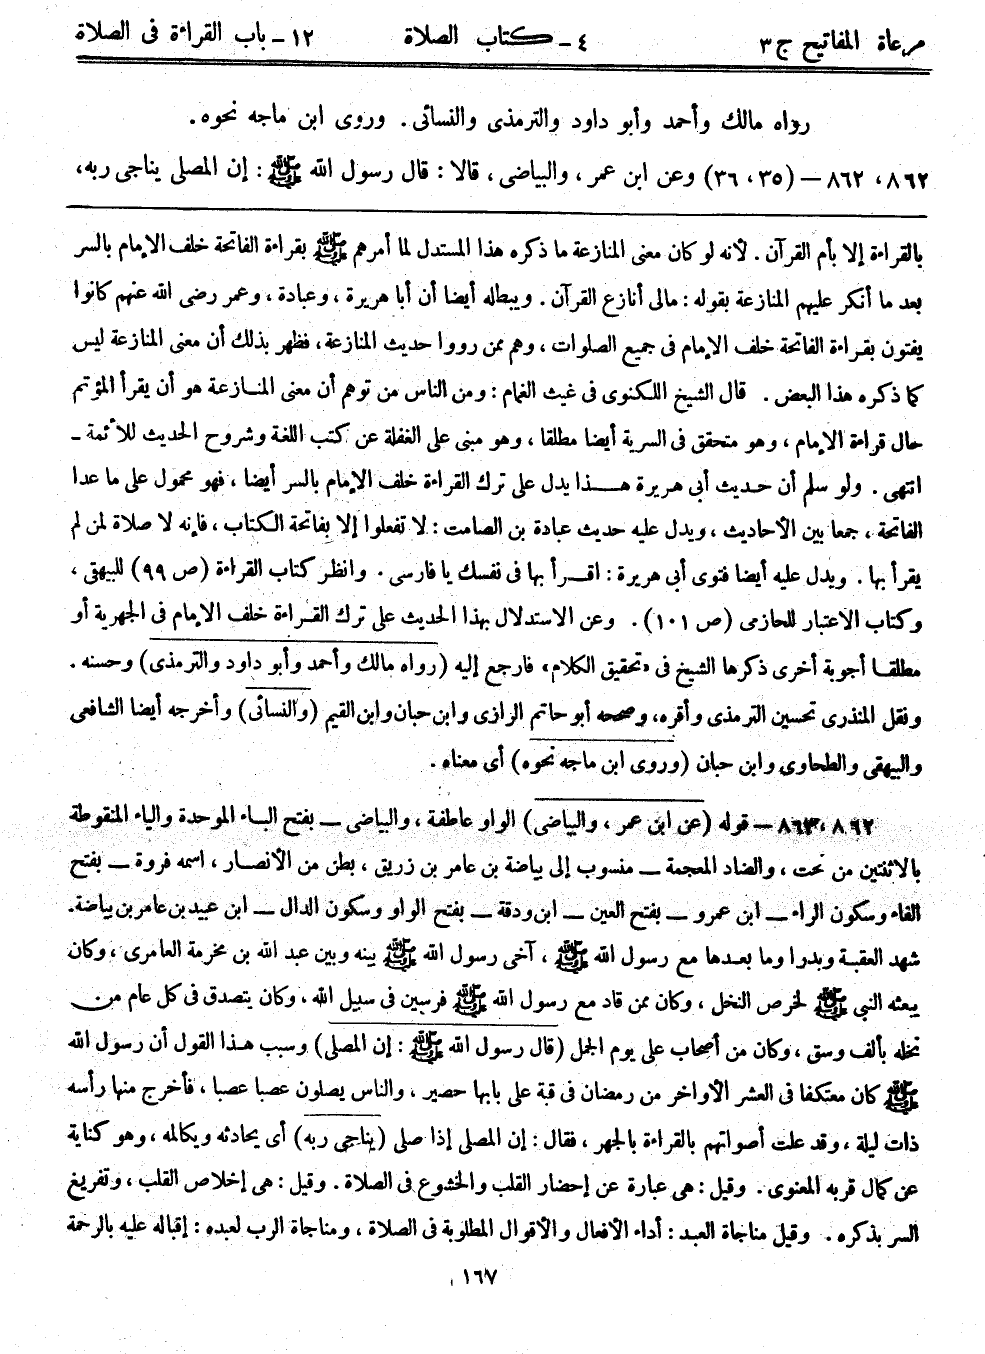 مرعاة المفاتيح ج ٣ ٤ - كتاب الصلاة ١٢ - باب القراءة فى الصلاة
رواه مالك وأحمد وأبو داود والترمذى والنسائى. وروى ابن ماجه نحوه.
٨٦٢، ٨٦٢ — (٣٥، ٣٦) وعن ابن عمر، والبياضى، قالا: قال رسول الله ﷺ: إن المصلى يناجى ربه،
بالقراءة إلا بأم القرآن. لأنه لو كان معنى المنازعة ما ذكره هذا المستدل لما أمرهم ﷺ بقراءة الفاتحة خلف الإمام بالسر
بعد ما أنكر عليهم المنازعة بقوله: مالى أنازع القرآن. ويبطله أيضا أن أبا هريرة، وعبادة، وعمر رضى الله عنهم كانوا
يفتون بقراءة الفاتحة خلف الإمام فى جميع الصلوات، وهم ممن رووا حديث المنازعة، فظهر بذلك أن معنى المنازعة ليس
كما ذكره هذا البعض. قال الشيخ اللكنوى فى غيث الغمام: ومن الناس من توهم أن معنى المنازعة هو أن يقرأ المؤتم
حال قراءة الإمام، وهو متحقق فى السرية أيضا مطلقا، وهو مبنى على الغفلة عن كتب اللغة وشروح الحديث للأئمة -
انتهى. ولو سلم أن حديث أبى هريرة هذا يدل على ترك القراءة خلف الإمام بالسر أيضا، فهو محمول على ما عدا
الفاتحة، جمعا بين الأحاديث، ويدل عليه حديث عبادة بن الصامت: لا تفعلوا إلا بفاتحة الكتاب، فإنه لا صلاة لمن لم
يقرأ بها. ويدل عليه أيضا فتوى أبى هريرة: اقرأ بها فى نفسك يا فارسى. وانظر كتاب القراءة (ص ٩٩) للبيهقى،
وكتاب الاعتبار للحازمى (ص ١٠١). وعن الاستدلال بهذا الحديث على ترك القراءة خلف الإمام فى الجهرية أو
مطلقا أجوبة أخرى ذكرها الشيخ فى «تحقيق الكلام» فارجع إليه (رواه مالك وأحمد وأبو داود والترمذى) وحسنه.
ونقل المنذرى تحسين الترمذى وأقره، وصححه أبو حاتم الرازى وابن حبان وابن القيم (والنسائى) وأخرجه أيضا الشافعى
والبيهقى والطحاوى وابن حبان (وروى ابن ماجه نحوه) أى معناه.
٨٦٢، ٨٦٣ — قوله (عن ابن عمر، والبياضى) الواو عاطفة، والبياضى — بفتح الباء الموحدة والياء المنقوطة
بالاثنتين من تحت، والضاد المعجمة — منسوب إلى بياضة بن عامر بن زريق، بطن من الأنصار، اسمه فروة — بفتح
الفاء وسكون الراء — ابن عمرو — بفتح العين — ابن ودقة — بفتح الواو وسكون الدال — ابن عبيد بن عامر بن بياضة.
شهد العقبة وبدرا وما بعدها مع رسول الله ﷺ، آخى رسول الله ﷺ بينه وبين عبد الله بن مخرمة العامرى، وكان
يبعثه النبى ﷺ لخرص النخل، وكان ممن قاد مع رسول الله ﷺ فرسين فى سبيل الله، وكان يتصدق فى كل عام من
نخله بألف وسق، وكان من أصحاب على يوم الجمل (قال رسول الله ﷺ: إن المصلى) وسبب هذا القول أن رسول الله
ﷺ كان معتكفا فى العشر الأواخر من رمضان فى قبة على بابها حصير، والناس يصلون عصبا عصبا، فأخرج منها رأسه
ذات ليلة، وقد علت أصواتهم بالقراءة بالجهر، فقال: إن المصلى إذا صلى (يناجى ربه) أى يحادثه ويكالمه، وهو كناية
عن كمال قربه المعنوى. وقيل: هى عبارة عن إحضار القلب والخشوع فى الصلاة. وقيل: هى إخلاص القلب، وتفريغ
السر بذكره. وقيل مناجاة العبد: أداء الأفعال والأقوال المطلوبة فى الصلاة، ومناجاة الرب لعبده: إقباله عليه بالرحمة
١٦٧